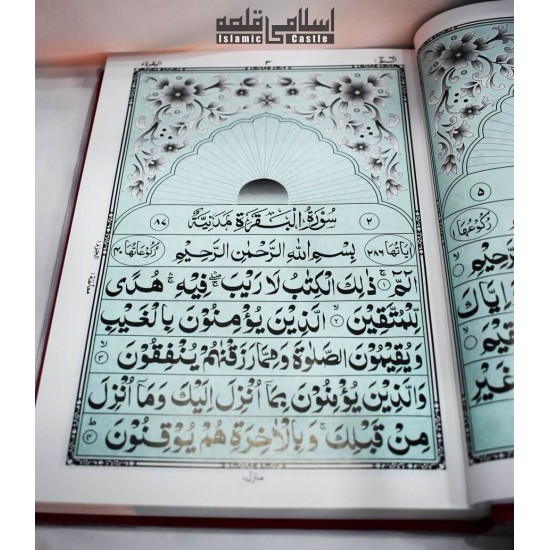 اسلامی قلعہ
Islamic Castle
البقرة ٢
٣
الٓمّٓ ١
٨٧ سُوْرَةُ الْبَقَرَةِ مَدَنِيَّةٌ ٢
اٰيَاتُهَا ٢٨٦ بِسْمِ اللهِ الرَّحْمٰنِ الرَّحِيْمِ رُكُوْعَاتُهَا ٤٠
الٓمّٓ ۚ ١ ذٰلِكَ الْكِتٰبُ لَا رَيْبَ ۛ فِيْهِ ۛ هُدًى
لِّلْمُتَّقِيْنَ ٢ الَّذِيْنَ يُؤْمِنُوْنَ بِالْغَيْبِ
وَيُقِيْمُوْنَ الصَّلٰوةَ وَمِمَّا رَزَقْنٰهُمْ يُنْفِقُوْنَ ٣
وَالَّذِيْنَ يُؤْمِنُوْنَ بِمَآ اُنْزِلَ اِلَيْكَ وَمَآ اُنْزِلَ
مِنْ قَبْلِكَ ۚ وَبِالْاٰخِرَةِ هُمْ يُوْقِنُوْنَ ٤ ط
منزل
٥
رُكُوْعُهَا
اِيَّاكَ
غَيْرِ